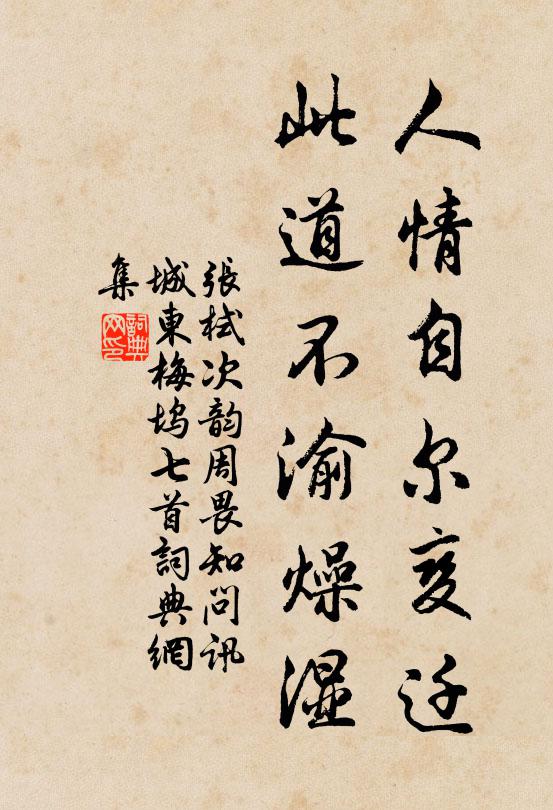 人情自尔变迁
此道不渝燥湿
張栻次韵周畏知问讯
城東梅坞七首詞典網
集
詞典網印